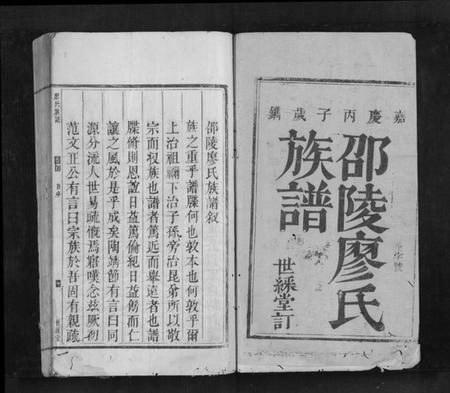 嘉慶丙子歲鐫
邵陵廖氏
族譜
世綵堂訂
邵陵廖氏族譜敘
族之重乎譜牒何也敦本也何敦乎爾
上治祖禰下治子孫旁治昆弟所以敬
宗而収族也譜者篤近而舉遠者也譜
牒脩則恩誼日益篤倫紀日益飭而仁
讓之風於是乎成矣陶靖節有言曰同
源分流人世易疏慨焉寤嘆念茲厥初
范文正公有言曰宗族於吾固有親疏